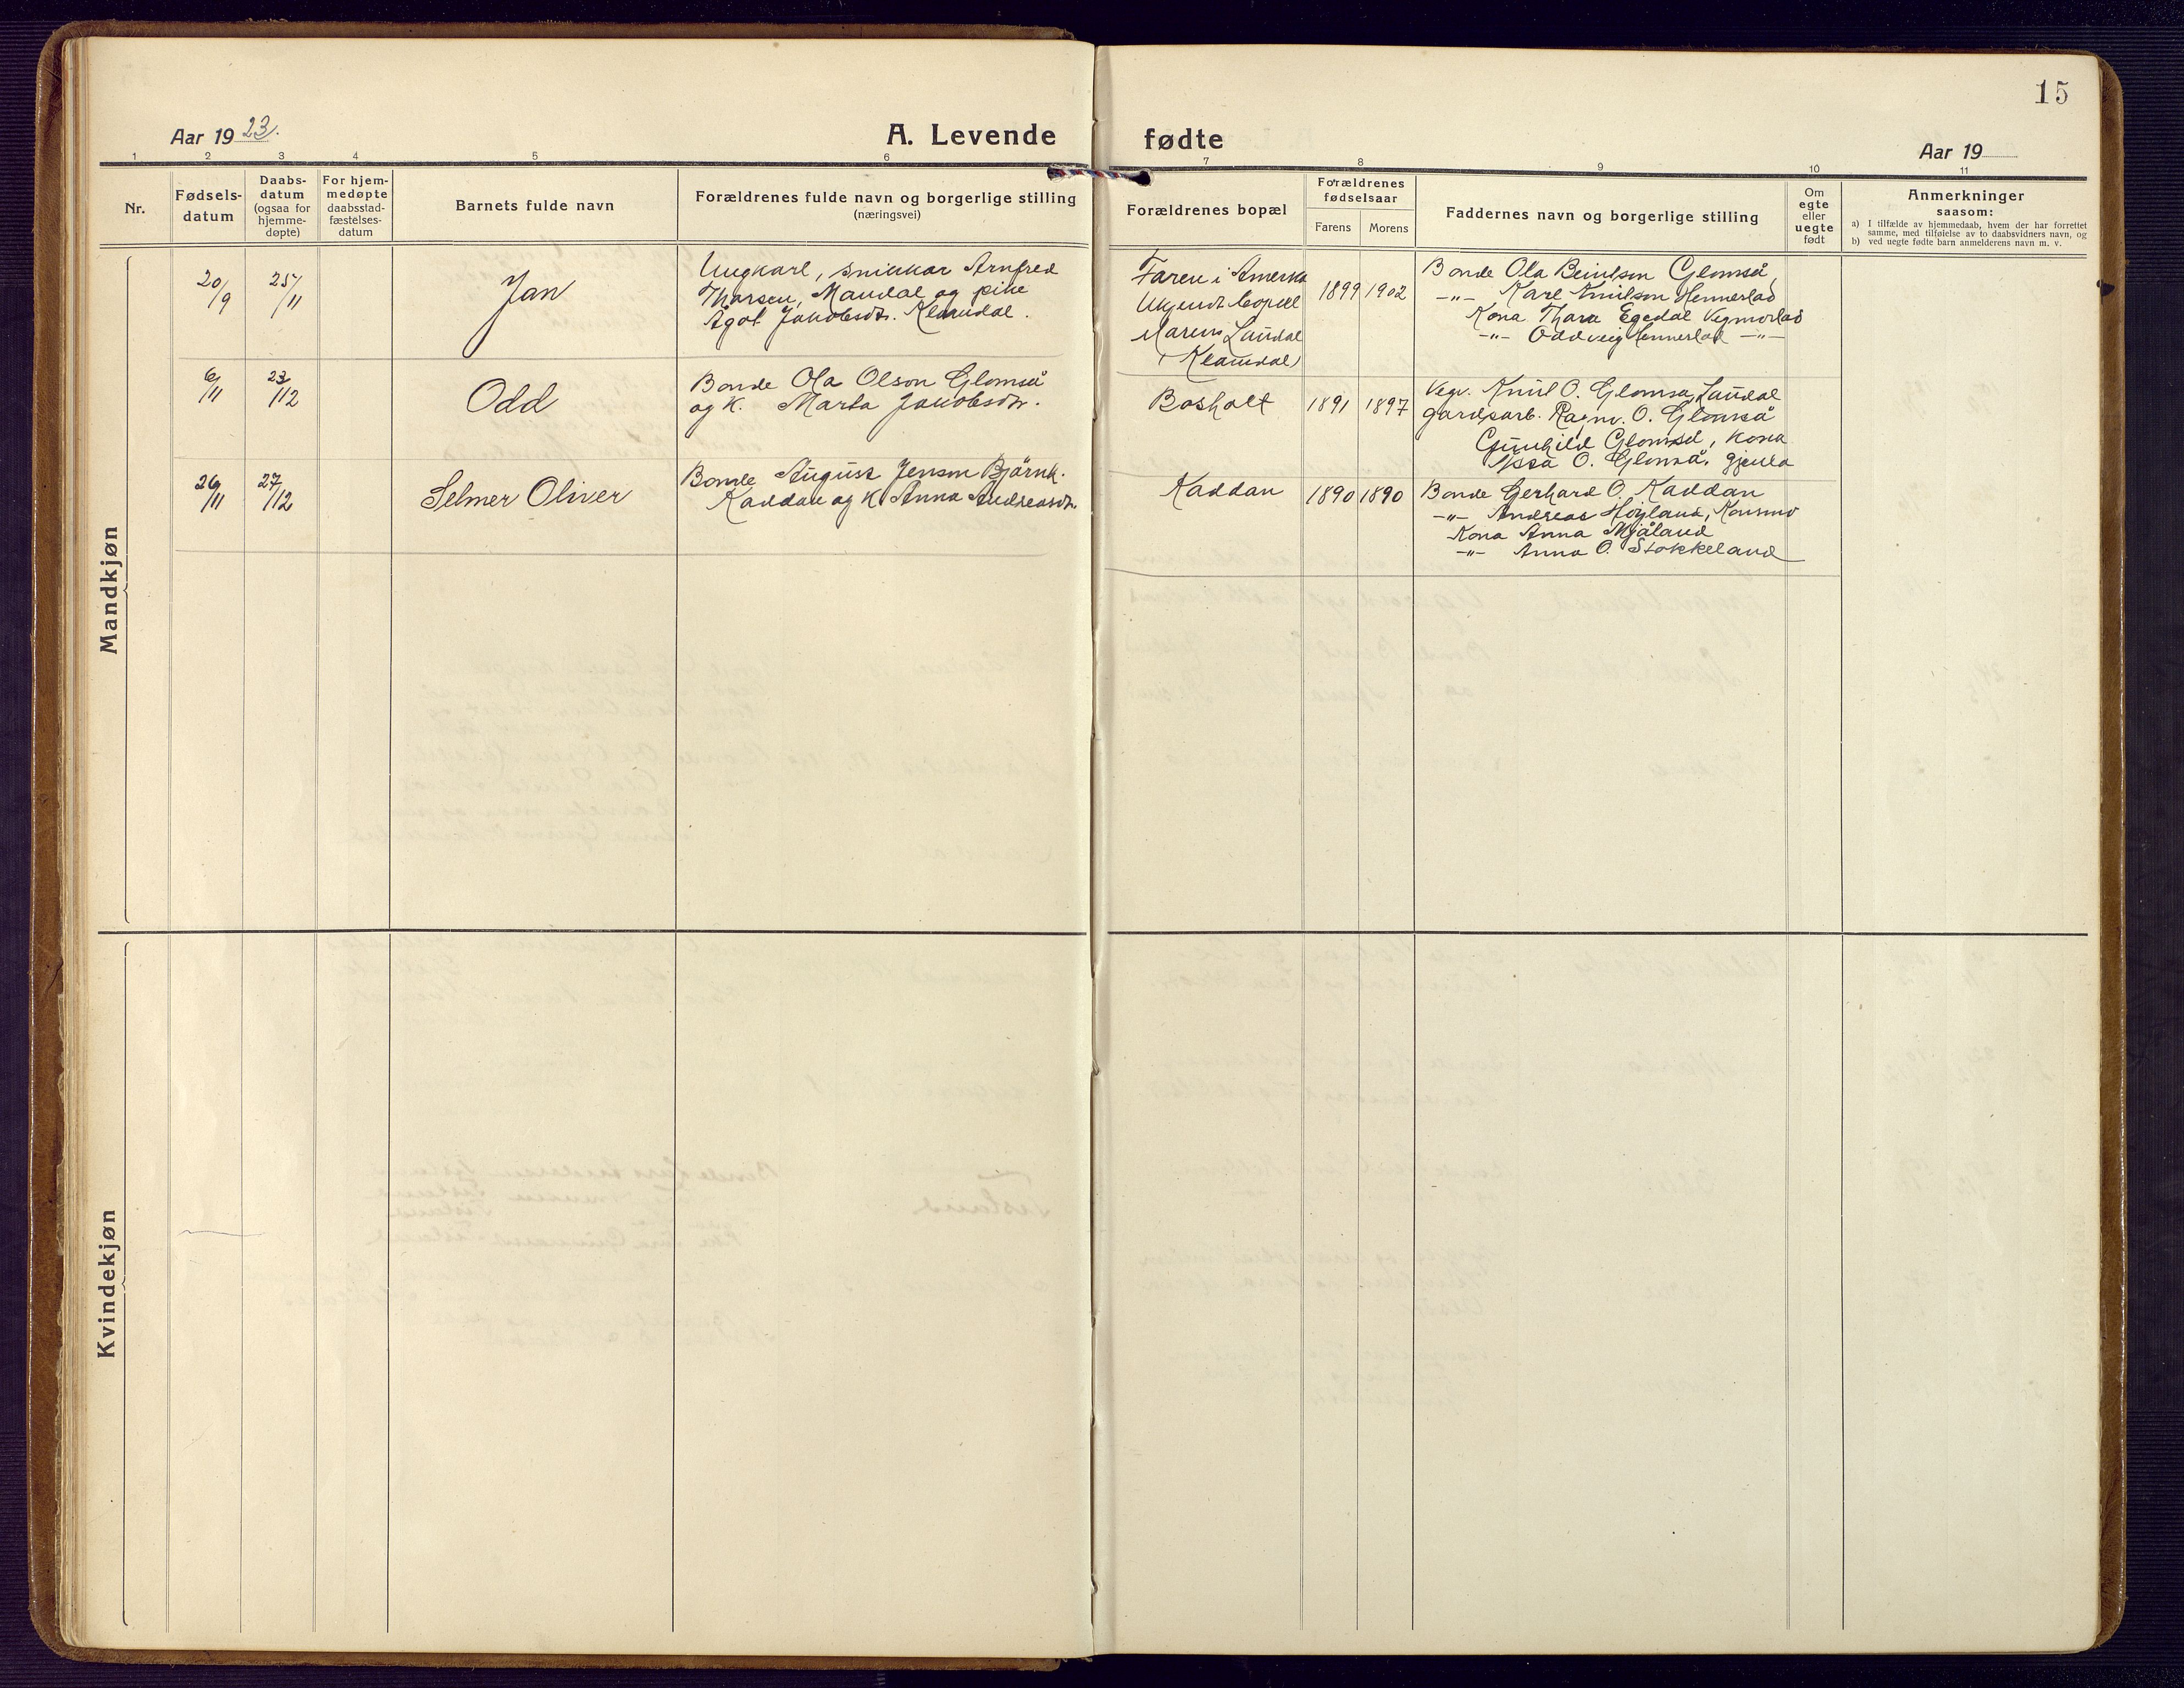 15
Aar 1923.
A. Levende fødte
Aar 19
1 2 3 4 5 6 7 8 9 10 11
Nr.
Fødsels-
datum
Daabs-
datum
(ogsaa for
hjemme-
døpte)
For hjem-
medøpte
daabsstad-
fæstelses-
datum
Barnets fulde navn
Forældrenes fulde navn og borgerlige stilling
(næringsvei)
Forældrenes bopæl
Forældrenes
fødselsaar
Farens Morens
Faddernes navn og borgerlige stilling
Om
egte
eller
uegte
født
Anmerkninger
saasom:
a) I tilfælde av hjemmedaab, hvem der har forrettet
samme, med tilføielse av to daabsvidners navn, og
b) ved uegte fødte barn anmelderens navn m. v.
Mandkjøn
20/9
25/11
Jan
Ungkarl, snikkar Arnfred
Thorsen, Mandal og pike
Agot Jakobsdtr. Kleivdal.
Faren i Amerka
Ukjendt bopæl
Marens Laudal
(Kleivdal)
1899 1902
Bonde Ola Beintson Glomså
-"- Karl Knutson Hennestad
Kona Thara Egedal Vegmostad
-"- Oddveig Hennestad -"-
6/11
23/12
Odd
Bonde Ola Olson Glomså
og K. Marta Jakobsdtr.
Bosholt
1891 1897
Vegv. Knut O. Glomsa, Laudal
gardsarb. Ragnv. O. Glomså
Gunhild Glomså, kona
O. Glomså, gjenta
26/11
27/12
Selmer Oliver
Bonde August Jenson Bjärnk.
Kaddan og K. Anna Andreasdtr.
Kaddan
1890 1890
Bonde Gerhard O. Kaddan
-"- Andreas Höyland, Konsmo
Kona Anna Mjåland
-"- Anna O. Stokkeland
Kvindekjøn